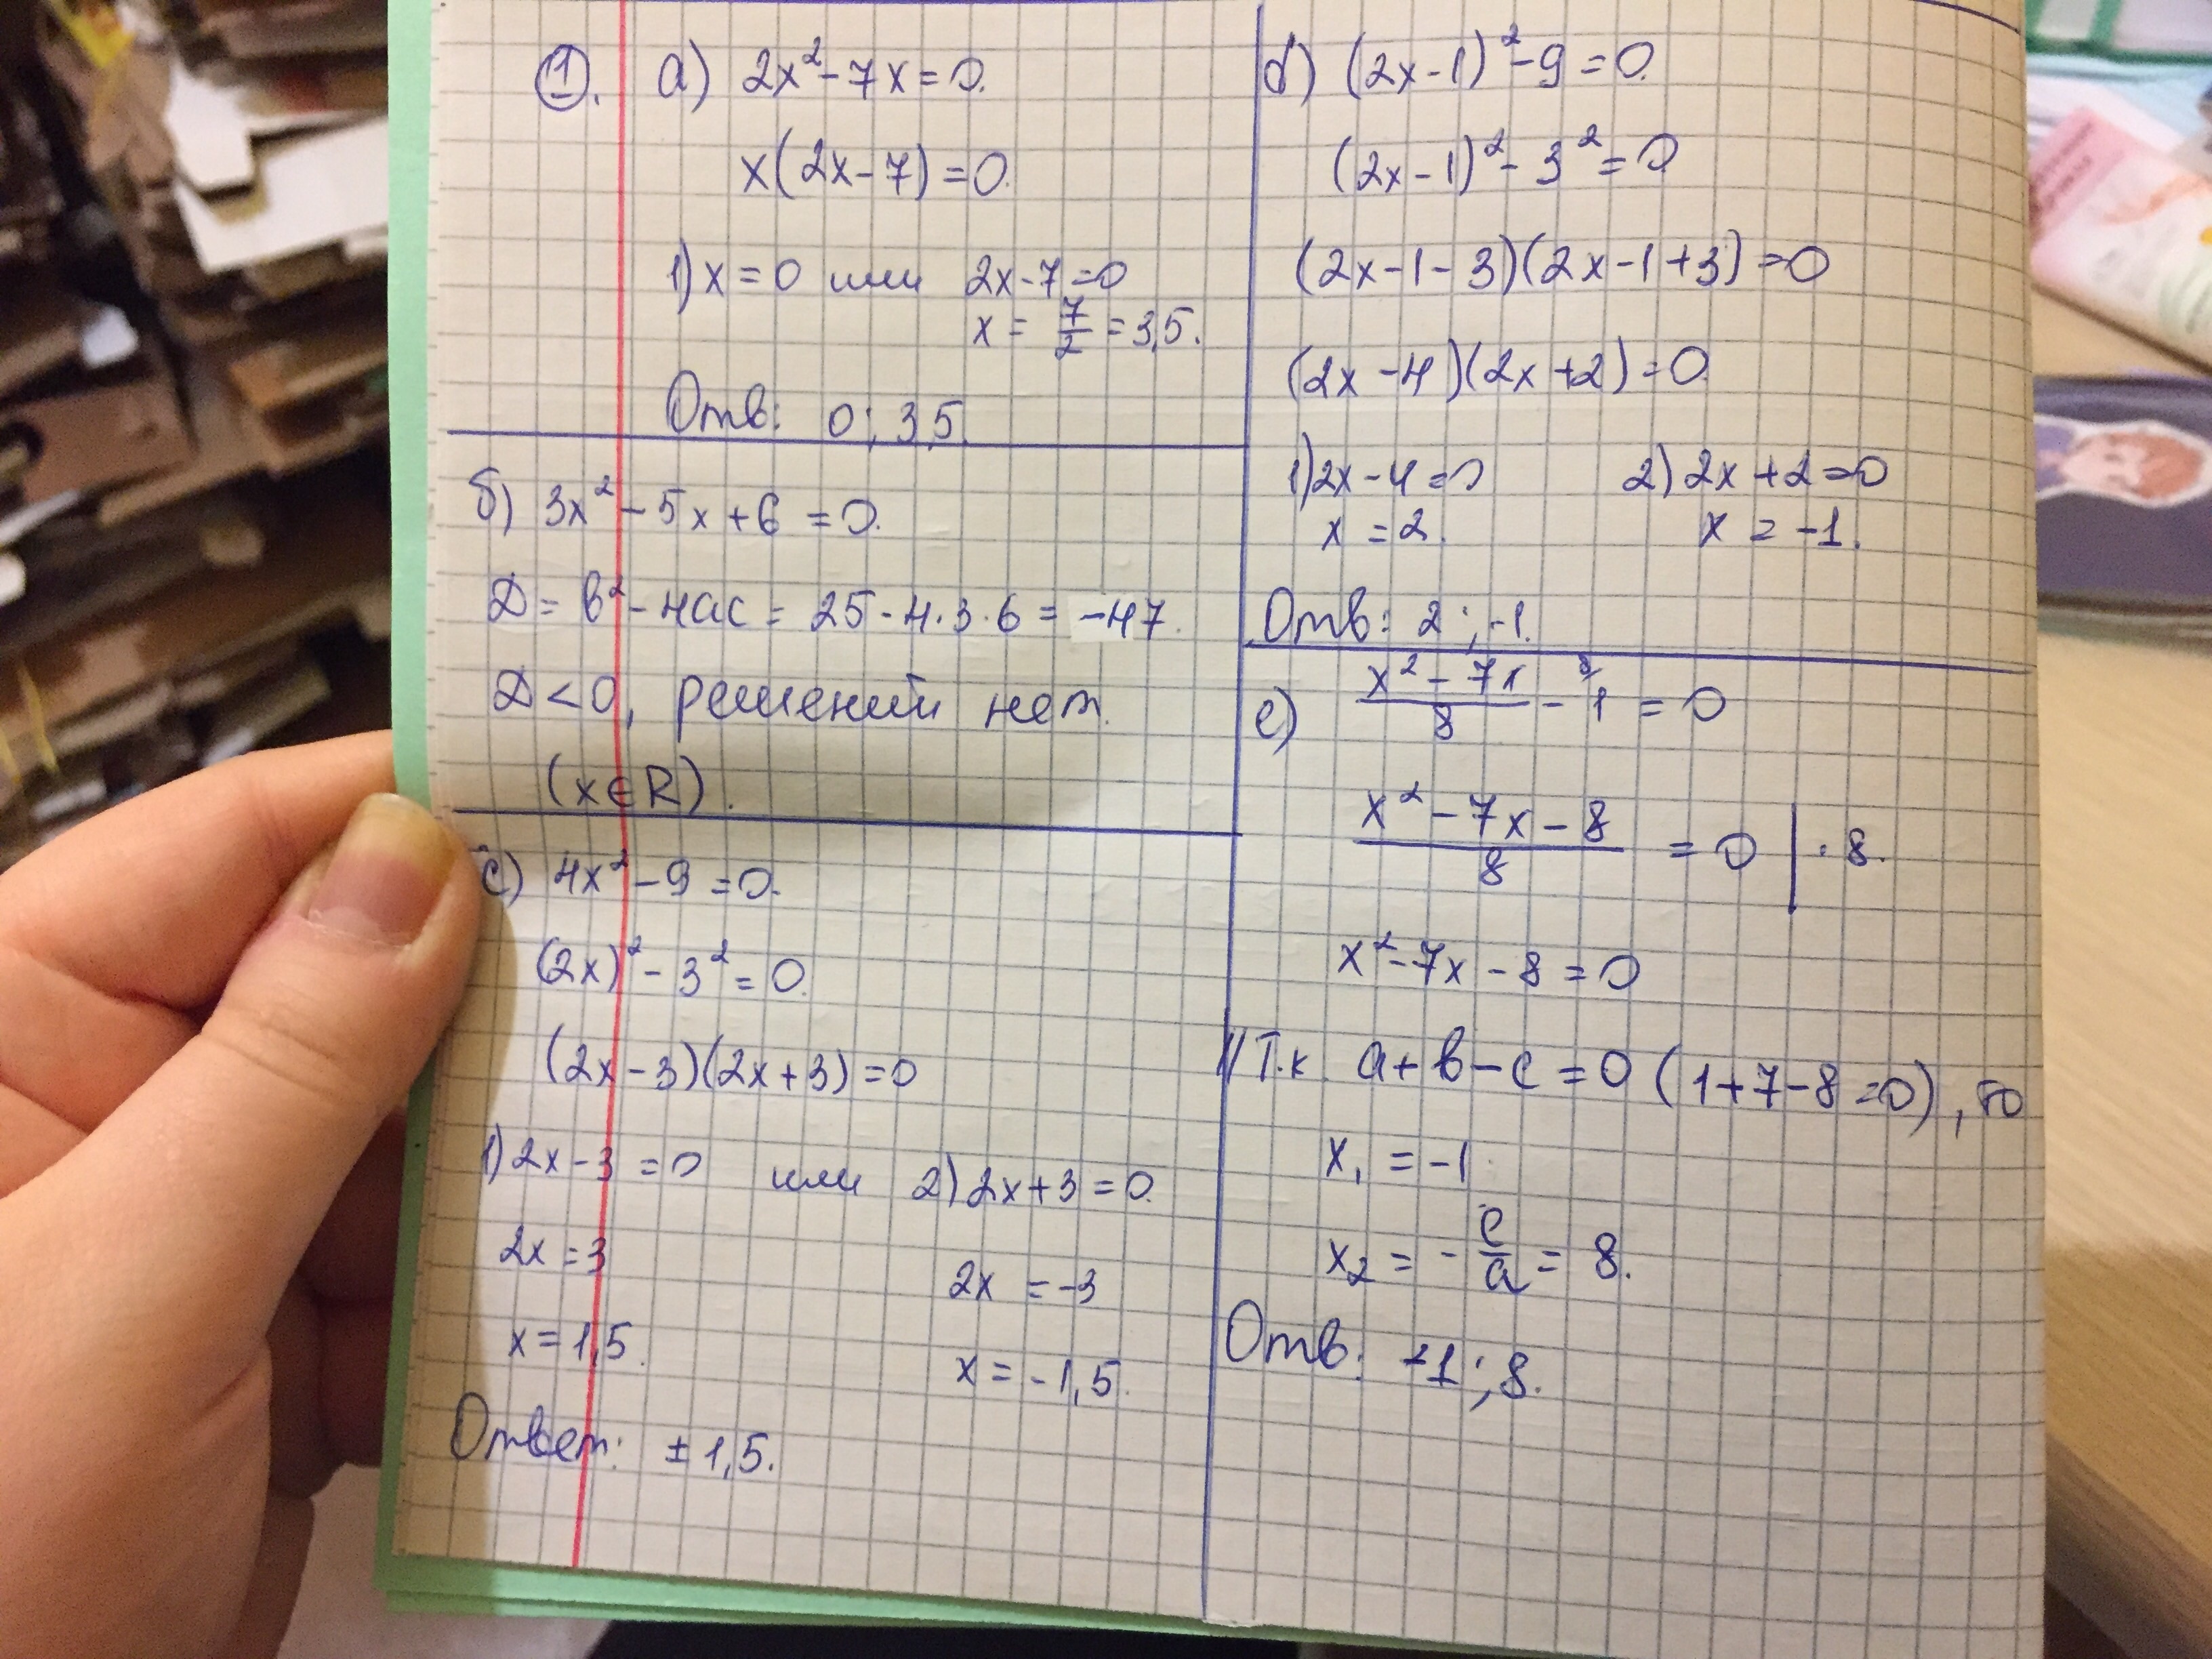 1. а) 2x² - 7x = 0.
x(2x - 7) = 0.
1) x = 0 или 2x - 7 = 0
x = 7/2 = 3,5.
Отв: 0; 3,5.
б) 3x² - 5x + 6 = 0.
Д = в² - 4ас = 25 - 4·3·6 = -47.
Д < 0, решений нет.
(x ∈ R).
с) 4x² - 9 = 0.
(2x)² - 3² = 0.
(2x - 3)(2x + 3) = 0
1) 2x - 3 = 0 или 2) 2x + 3 = 0.
2x = 3
2x = -3
x = 1,5.
x = -1,5.
Ответ: ± 1,5.
d) (2x - 1)² - 9 = 0.
(2x - 1)² - 3² = 0
(2x - 1 - 3)(2x - 1 + 3) = 0
(2x - 4)(2x + 2) = 0
1) 2x - 4 = 0 2) 2x + 2 = 0
x = 2. x = -1.
Отв: 2; -1.
е) (x² - 7x)/8 - 1 = 0
(x² - 7x - 8)/8 = 0 | · 8.
x² - 7x - 8 = 0
// Т.к. а + в - с = 0 (1 + 7 - 8 = 0), то
x₁ = -1.
x₂ = - с/а = 8.
Отв: -1; 8.